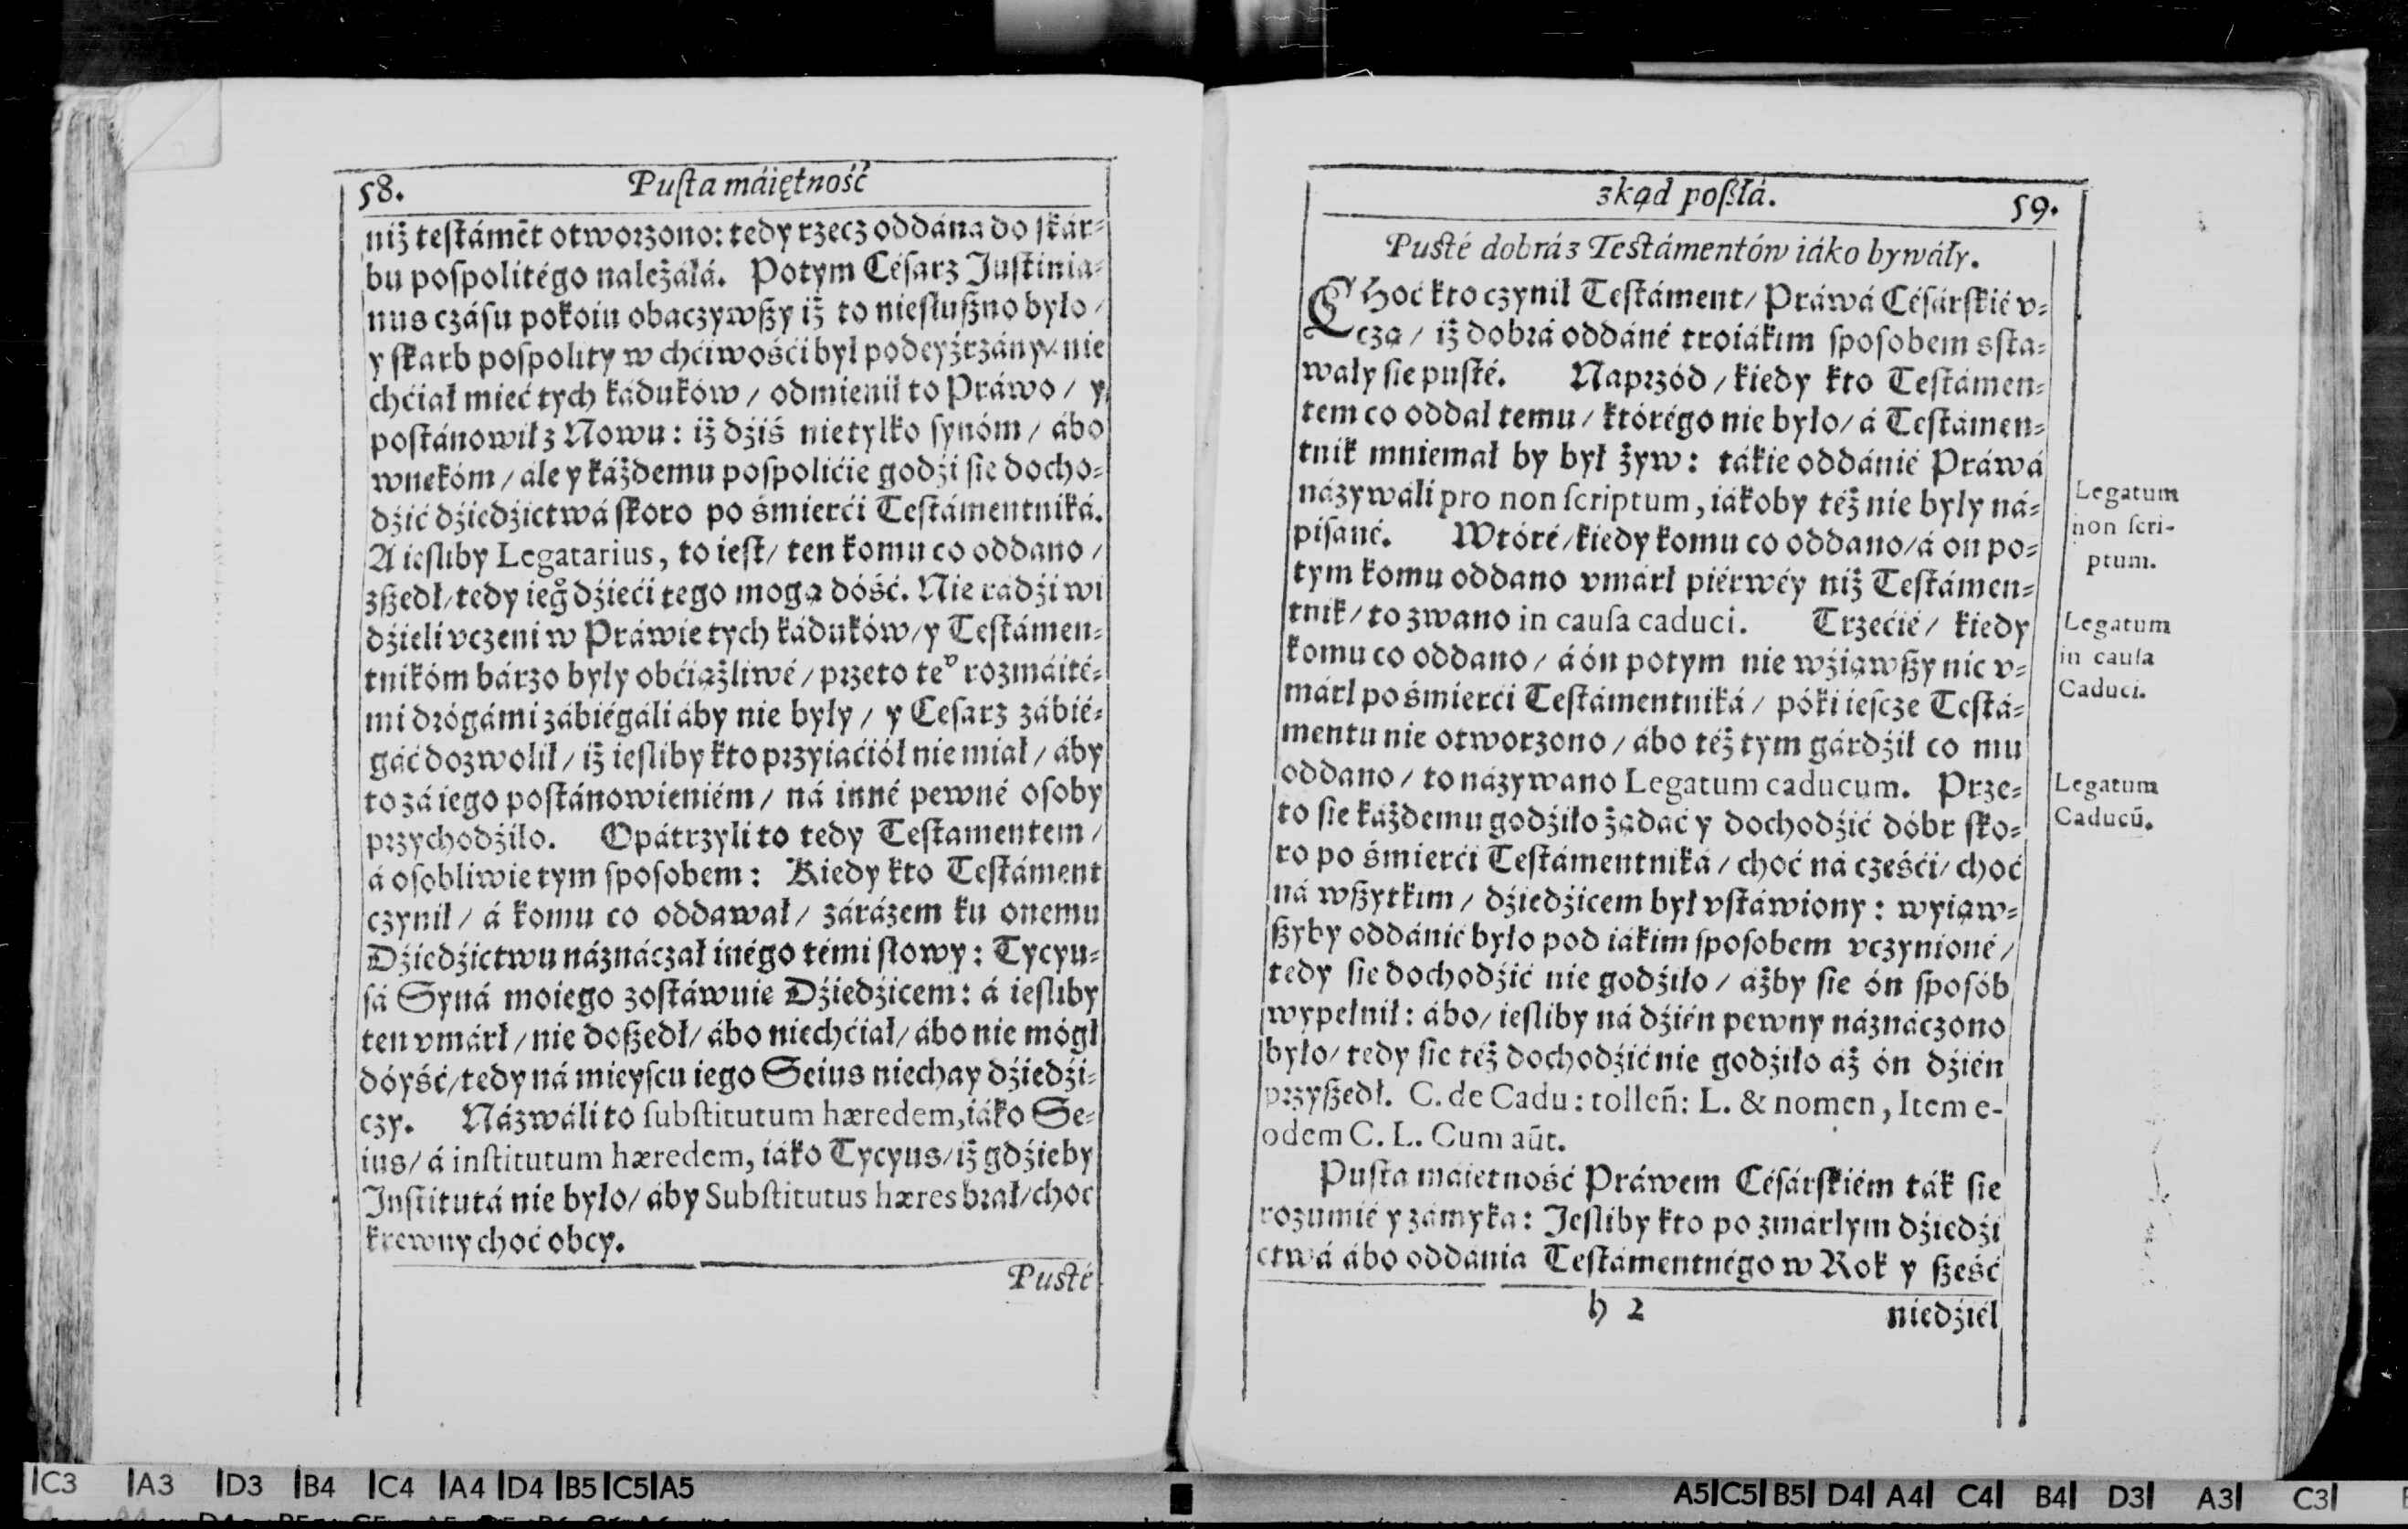 58. Puſta máiętność
niż teſtámēt otworzono: tedy rzecz oddána do ſkár-
bu poſpolitégo należáłá. Potym Céſarz Juſtinia-
nus czáſu pokoiu obaczywſzy iż to nieſłuſzno było /
y ſkarb poſpolity w chćiwośći był podeyźrzány / nie
chćiał mieć tych káduków / odmienił to Práwo / y
poſtánowił z Nowu: iż dźiś nietylko ſynóm / ábo
wnekóm / ále y káżdemu poſpolićie godźi ſie docho-
dźić dźiedźictwá ſkoro po śmierći Teſtámentniká.
A ieſliby Legatarius, to ieſt / ten komu co oddano /
zſzedł / tedy ieg° dźieći tego mogą dóść. Nie rádźi wi
dźieli vczeni w Práwie tych káduków / y Teſtámen-
tnikóm bárzo były obćiążliwé / przeto teᵛ rozmáité-
mi drógámi zábiégáli áby nie były / y Ceſarz zábié-
gáć dozwolił / iż ieſliby kto przyiaćiół nie miał / áby
to zá iego poſtánowieniém / ná inné pewné oſoby
przychodźiło. Opátrzyli to tedy Teſtamentem /
á oſobliwie tym ſpoſobem: Kiedy kto Teſtáment
czynił / á komu co oddawał / zárázem ku onemu
Dźiedźictwu náznáczał inégo témi ſłowy: Tycyu-
ſá Syná moiego zoſtáwuie Dźiedźicem: á ieſliby
ten vmárł / nie doſzedł / ábo niechćiał / ábo nie mógł
dóyść / tedy ná mieyſcu iego Seius niechay dźiedźi-
czy. Názwáli to ſubſtitutum hæredem, iáko Se-
ius / á inſtitutum hæredem, iáko Tycyus / iż gdźieby
Inſtitutá nie było / áby Subſtitutus hæres brał / choć
krewny choć obcy.
Pusté
zkąd poſzłá. 59.
Pusté dobrá z Testámentów iáko bywáły.
CHoć kto czynił Teſtáment / Práwá Céſárſkié v-
czą / iż dobrá oddáné troiákim ſpoſobem sſta-
wały ſie puſté. Naprzód / kiedy kto Teſtámen-
tem co oddał temu / którégo nie było / á Teſtámen-
tnik mniemał by był żyw: tákie oddánié Práwá
názywáli pro non ſcriptum, iákoby też nie były ná-
piſané. Wtóré / kiedy komu co oddano / á on po-
tym komu oddano vmárł piérwéy niż Teſtámen-
tnik / to zwano in cauſa caduci. Trzećié / kiedy
komu co oddano / á ón potym nie wźiąwſzy nic v-
márł po śmierći Teſtámentniká / póki ieſcze Teſtá-
mentu nie otworzono / ábo też tym gárdźił co mu
oddano / to názywano Legatum caducum. Prze-
to ſie káżdemu godźiło żądáć y dochodźić dóbr ſko-
ro po śmierći Teſtámentniká / choć ná cześći / choć
ná wſzytkim / dźiedźicem był vſtáwiony: wyiąw-
ſzyby oddánié było pod iákim ſpoſobem vczynioné /
tedy ſie dochodźić nie godźiło / áżby ſie ón ſpoſób
wypełnił: ábo / ieſliby ná dźién pewny náznáczono
było / tedy ſie też dochodźić nie godźiło áż ón dźién
przyſzedł. C. de Cadu: tolleñ: L. & nomen, Item e-
odem C. L. Cum aūt.
Puſta máietność Práwem Céſárſkiém ták ſie
rozumié y zámyka: Jeſliby kto po zmárłym dźiedźi
ctwá ábo oddánia Teſtámentnégo w Rok y ſześć
h 2 niedźiél
Legatum
non ſcri-
ptum.
Legatum
in cauſa
Caduci.
Legatum
Caducū.
C3 A3 D3 B4 C4 A4 D4 B5 C5 A5
A5 C5 B5 D4 A4 C4 B4 D3 A3 C3